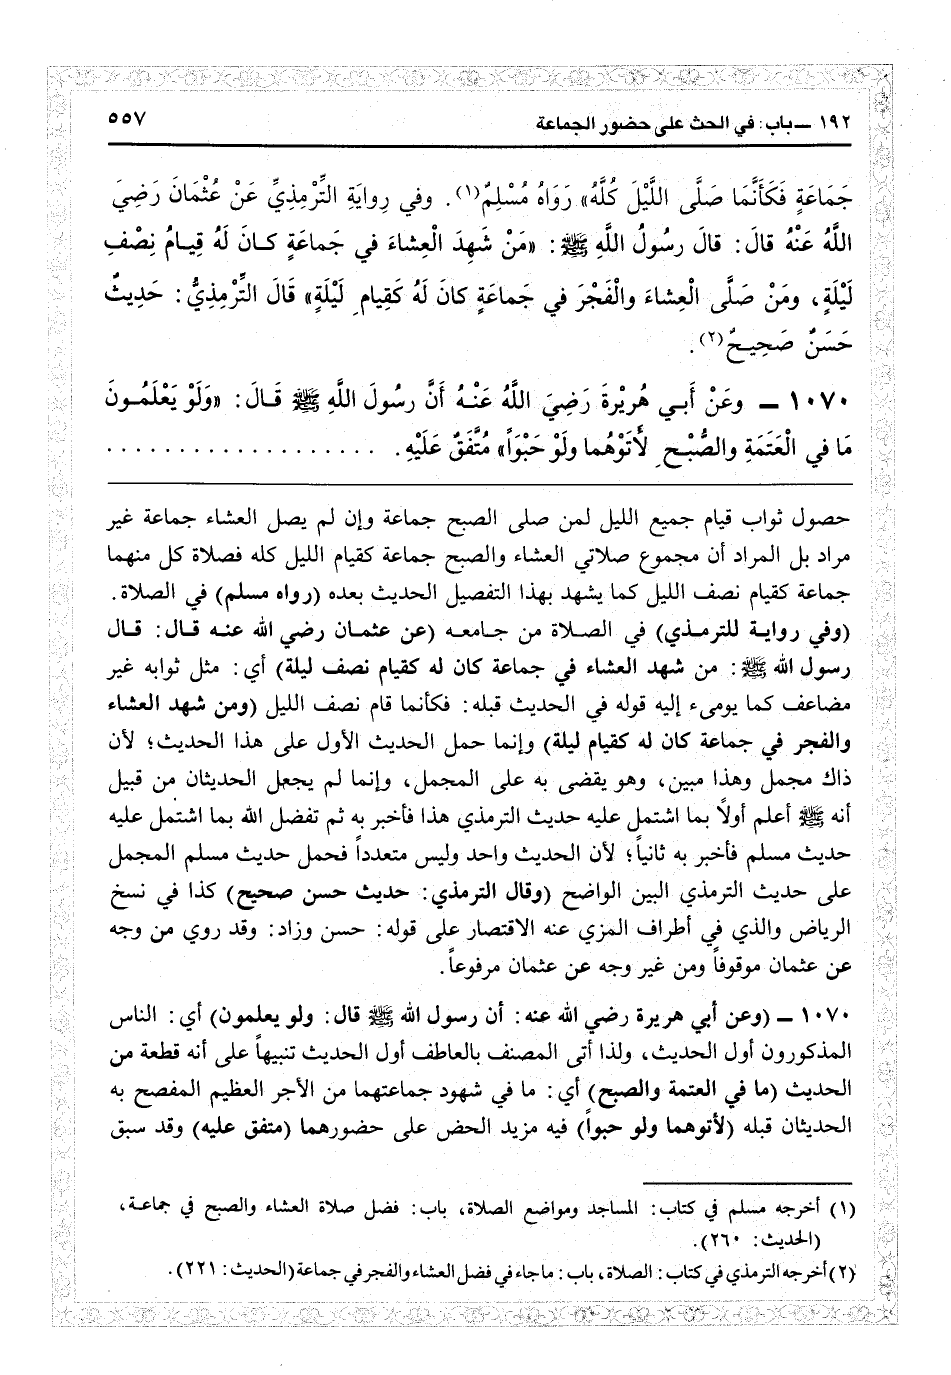 ١٩٢ ـ باب: في الحث على حضور الجماعة ٥٥٧
جَمَاعَةٍ فَكَأَنَّمَا صَلَّى اللَّيْلَ كُلَّهُ» رَوَاهُ مُسْلِمٌ(١). وفي رِوايَةِ التِّرْمِذِيِّ عَنْ عُثْمَانَ رَضِيَ
اللَّهُ عَنْهُ قالَ: قالَ رسُولُ اللَّهِ ﷺ: «مَنْ شَهِدَ الْعِشاءَ في جَماعَةٍ كـانَ لَهُ قِيامُ نِصْفِ
لَيْلَةٍ، ومَنْ صَلَّى الْعِشاءَ والْفَجْرَ في جَماعَةٍ كانَ لَهُ كَقِيامِ لَيْلَةٍ» قَالَ التِّرْمِذِيُّ: حَدِيثٌ
حَسَنٌ صَحِيـحٌ(٢).
١٠٧٠ ـ وعَنْ أَبـي هُرِيْرةَ رَضِيَ اللَّهُ عَنْـهُ أَنَّ رسُولَ اللَّهِ ﷺ قَـالَ: «وَلَوْ يَعْلَمُـونَ
مَا في الْعَتَمَةِ والصُّبْـحِ لأَتَوْهُما ولَوْ حَبْوَاً» مُتَّفَقٌ عَلَيْهِ. . . . . . . . . . . . . . . . . . . .
حصول ثواب قيام جميع الليل لمن صلى الصبح جماعة وإن لم يصل العشاء جماعة غير
مراد بل المراد أن مجموع صلاتي العشاء والصبح جماعة كقيام الليل كله فصلاة كل منهما
جماعة كقيام نصف الليل كما يشهد بهذا التفصيل الحديث بعده (رواه مسلم) في الصلاة.
(وفي روايـة للترمـذي) في الصـلاة من جـامعـه (عن عثمـان رضي الله عنـه قـال: قـال
رسول الله ﷺ: من شهد العشاء في جماعة كان له كقيام نصف ليلة) أي: مثل ثوابه غير
مضاعف كما يومىء إليه قوله في الحديث قبله: فكأنما قام نصف الليل (ومن شهد العشاء
والفجر في جماعة كان له كقيام ليلة) وإنما حمل الحديث الأول على هذا الحديث؛ لأن
ذاك مجمل وهذا مبين، وهو يقضى به على المجمل، وإنما لم يجعل الحديثان من قبيل
أنه ﷺ أعلم أولاً بما اشتمل عليه حديث الترمذي هذا فأخبر به ثم تفضل الله بما اشتمل عليه
حديث مسلم فأخبر به ثانياً؛ لأن الحديث واحد وليس متعدداً فحمل حديث مسلم المجمل
على حديث الترمذي البين الواضح (وقال الترمذي: حديث حسن صحيح) كذا في نسخ
الرياض والذي في أطراف المزي عنه الاقتصار على قوله: حسن وزاد: وقد روي من وجه
عن عثمان موقوفاً ومن غير وجه عن عثمان مرفوعاً.
١٠٧٠ ـ (وعن أبي هريرة رضي الله عنه: أن رسول الله ﷺ قال: ولو يعلمون) أي: الناس
المذكورون أول الحديث، ولذا أتى المصنف بالعاطف أول الحديث تنبيهاً على أنه قطعة من
الحديث (ما في العتمة والصبح) أي: ما في شهود جماعتهما من الأجر العظيم المفصح به
الحديثان قبله (لأتوهما ولو حبواً) فيه مزيد الحض على حضورهما (متفق عليه) وقد سبق
(١) أخرجه مسلم في كتاب: المساجد ومواضع الصلاة، باب: فضل صلاة العشاء والصبح في جماعـة،
(الحديث: ٢٦٠).
(٢) أخرجه الترمذي في كتاب: الصلاة، باب: ما جاء في فضل العشاء والفجر في جماعة (الحديث: ٢٢١).